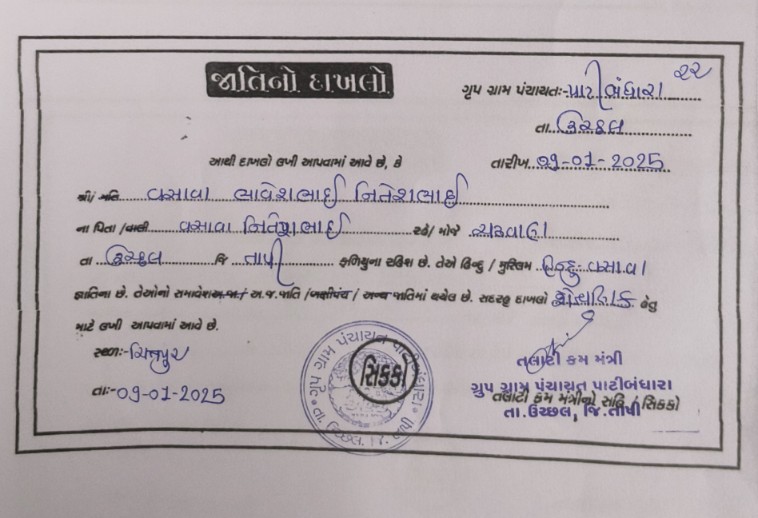 ૨૨
જાતિનો દાખલો
ગૃપ ગ્રામ પંચાયતઃ- પાટીબંધારા
તા. ઉચ્છલ
આથી દાખલો લખી આપવામાં આવે છે, કે
તારીખ ૦૧-01-2025
શ્રી/ મતિ વસાવા ભાવેશભાઈ નિતેશભાઈ
ના પિતા /વાલી વસાવા નિતેશભાઈ રહે/ મોજે
તા ઉચ્છલ જિ તાપી ફળિયુના રહિશ છે. તેઓ હિન્દુ / મુસ્લિમ હિન્દુ વસાવા
જ્ઞાતિના છે. તેઓનો સમાવેશ અ.જા/ અ.જ.જાતિ /બક્ષીપંચ / અન્ય જાતિમાં થયેલ છે. સદરહુ દાખલો શૈક્ષણિક હેતુ
માટે લખી આપવામાં આવે છે.
સ્થળઃ-
તાઃ- 09-01-2025
ગૃપ ગ્રામ પંચાયત પાટીબંધારા
તા. ઉચ્છલ, જિ. તાપી
સિક્કો
તલાટી કમ મંત્રી
ગ્રુપ ગ્રામ પંચાયત પાટીબંધારા
તલાટી કમ મંત્રીનો સહિ / સિક્કો
તા.ઉચ્છલ, જિ.તાપી